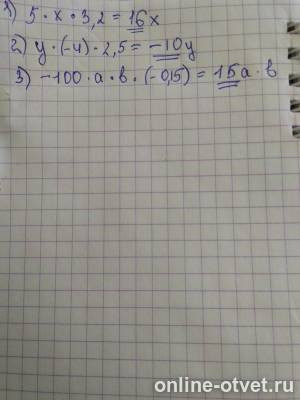 1) 5 · x · 3,2 = 16x
2) y · (-4) · 2,5 = -10y
3) -100 · a · b · (-0,15) = 15a · b
online-otvet.ru